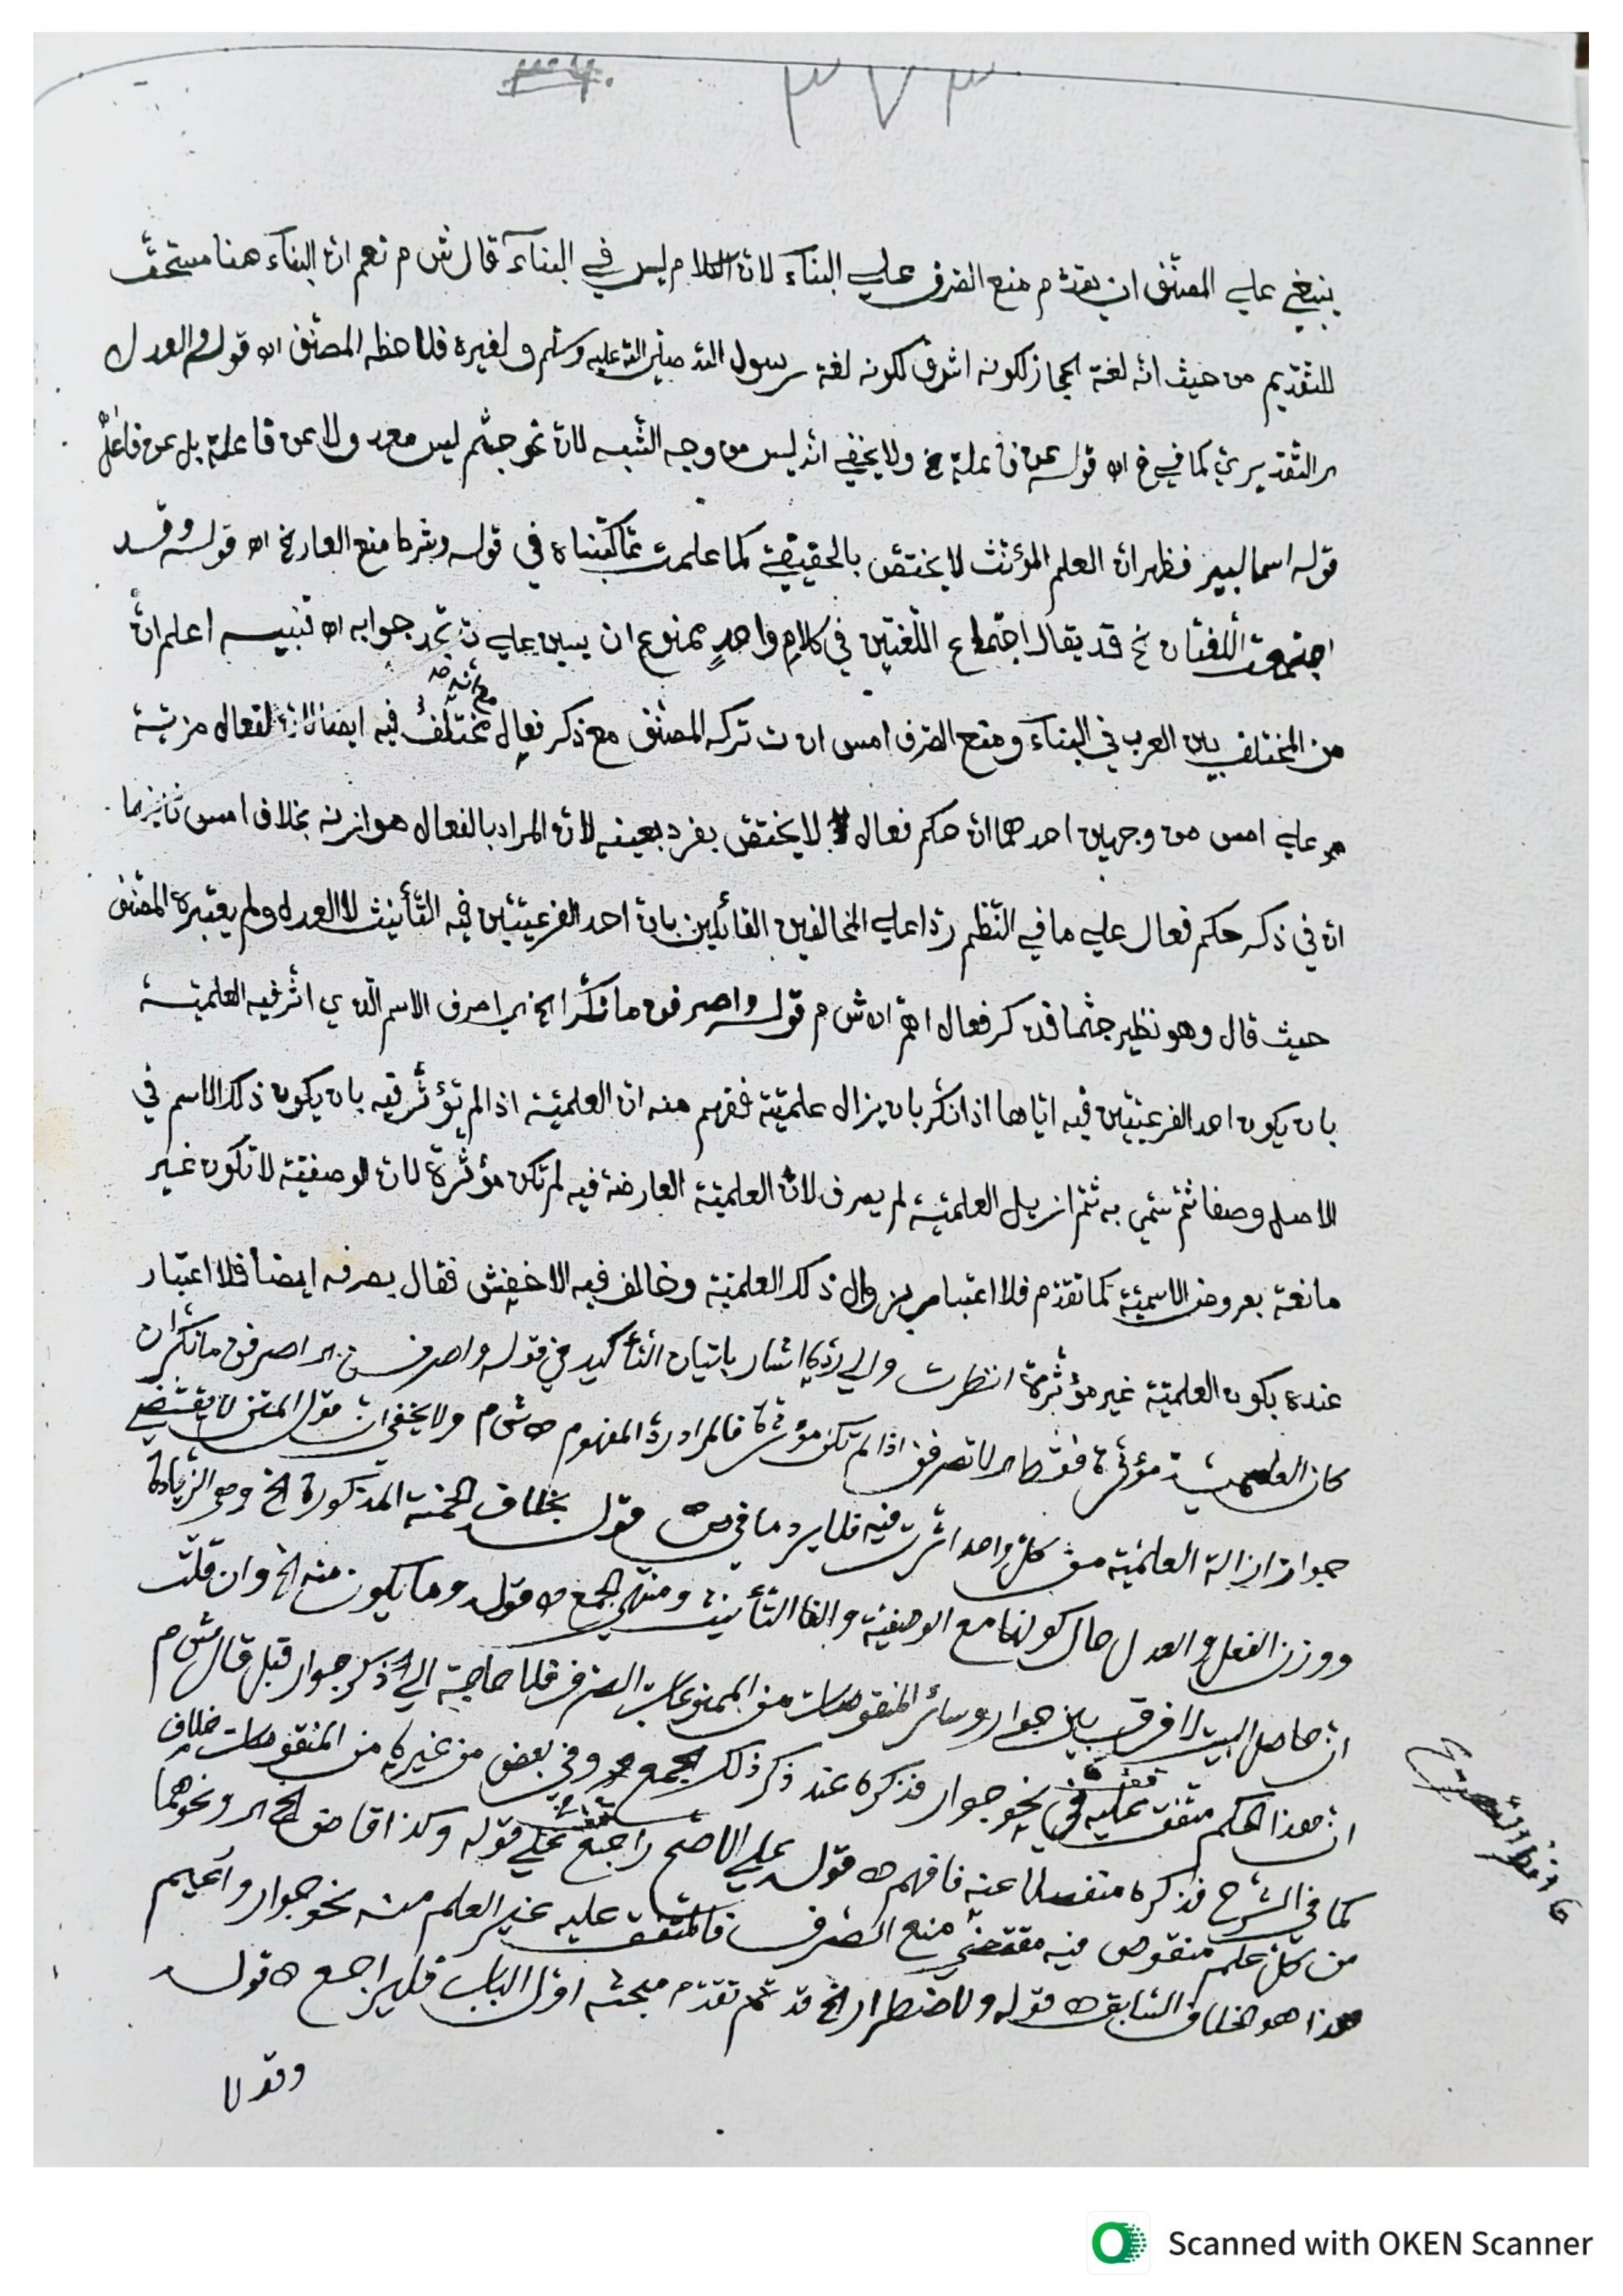 ٣٧٣
ينبغي على المصنّف ان يقدّم منع الصرف على البناء لانّ الكلام ليس في البناء قال ش م نعم انّ البناء هنا مستحقّ
للتقديم من حيث انّه لغة الحجاز لكونه اشرف لكونه لغة رسول الله صلى الله عليه وسلم ولغيره فلاحظه المصنّف اه قوله والعدل
التقديري كما في اه قوله عن فاعلة ولا يخفى انّه ليس من وجه الشبه لانّ نحو جشم ليس معدولا عن فاعلة بل عن فاعل
قوله اسما لبير فظهر انّ العلم المؤنّث لا يختصّ بالحقيقيّ كما علمت ممّا كتبناه في قوله وشرط منع العار الخ اه قوله وقد
اجتمعت اللّغتان الخ قد يقال اجتماع اللّغتين في كلام واحد ممنوع ان يبين على جوابه اه تنبيه اعلم انّ
من المختلف بين العرب في البناء ومنع الصّرف امس تركه المصنّف مع ذكر فعال مع انه مختلف فيه ايضا لانّ لفعال مزيّة
على امس من وجهين احدهما انّ حكم فعال لا يختصّ بفرد بعينه لانّ المراد بالفعال هو ازنه بخلاف امس ثانيهما
انّ في ذكر حكم فعال على ما في النّظم ردّا على المخالفين القائلين بانّ احد الفرعيّتين فيه التّأنيث لا العدل ولم يعتبره المصنّف
حيث قال وهو نظير جشما فذكر فعال اهمّ اه ش م قوله واصرفن ما نكّرا الخ اي اصرف الاسم الّذي اثّر فيه العلميّة
بان يكون احد الفرعيّتين فيه ايّاها اذا نكّر بان يزال علميّته ففهم منه انّ العلميّة اذا لم تؤثّر فيه بان يكون ذلك الاسم في
الاصل وصفا ثمّ سمّي به ثمّ ازيل العلميّة لم يصرف لانّ العلميّة العارضة فيه لم تكن مؤثّرة لانّ الوصفيّة لا تكون غير
مانعة بعروض الاسميّة كما تقدّم فلا اعتبار بزوال ذلك العلميّة وخالف فيه الاخفش فقال يصرفه ايضا فلا اعتبار
عنده بكون العلميّة غير مؤثّرة انظرت والى ردّه اشار باتيان التّأكيد في قوله واصرفن اي اصرفن ما نكّر ان
كان العلميّة مؤثّرة فقط اي لا تصرفن اذا لم تكن مؤثّرة فالمراد ردّ المفهوم اه ش م ولا يخفى انّ قول المتن لا يقتضي
جواز ازالة العلميّة من كلّ واحد اثّرت فيه فلا يرد ما في قوله بخلاف الخمسة المذكورة الخ وهو الزّيادة
ووزن الفعل والعدل حال كونها مع الوصفيّة والفا التّأنيث ومنتهى الجمع اه قوله وما يكون منه الخ وان قلت
انّ حاصل البيت لا فرق بين جوار وسائر المنقوصات من الممنوعات الصّرف فلا حاجة الى ذكر جوار قبل قال ش م
انّ هذا الحكم متفق عليه في نحو جوار فذكره عند ذكر ذلك الجمع وفي بعض من غيره من المنقوصات خلاف
كما في الشرح فذكره منفصلا عنه فافهم اه قوله على الاصحّ راجع على قوله وكذا قاض الخ اي ونحوهما
من كلّ علم منقوص فيه مقتضي منع الصّرف فالمتّفق عليه غير العلم منه نحو جوار واعيم
هذا هو الخلاف السّابق اه قوله ولاضطرار الخ قد تقدّم مبحثه اوّل الباب فليراجع اه قوله
وقد لا
Scanned with OKEN Scanner